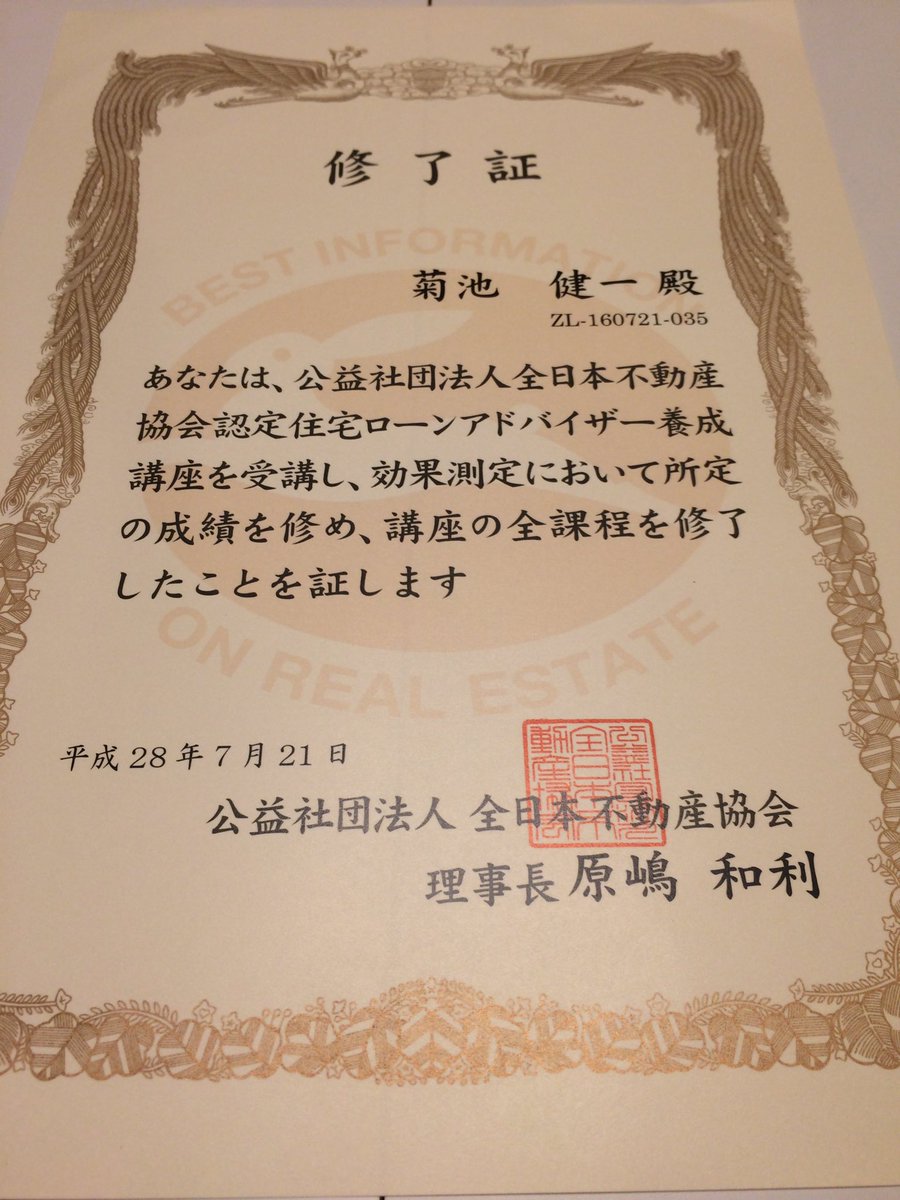 修了証
菊池　健一殿
ZL-160721-035
あなたは、公益社団法人全日本不動産
協会認定住宅ローンアドバイザー養成
講座を受講し、効果測定において所定
の成績を修め、講座の全課程を修了
したことを証します
BEST INFORMATION
ON REAL ESTATE
平成28年7月21日
公益社団法人 全日本不動産協会
理事長 原嶋 和利